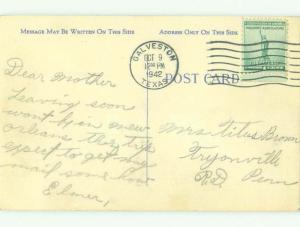 MESSAGE MAY BE WRITTEN ON THIS SIDE
ADDRESS ONLY ON THIS SIDE
GALVESTON
OCT 9
12 PM
1942
TEXAS
POST CARD
Dear Mother
Leaving soon
won't be in new
orleans this trip
expect to get my
mail some how
Elmer,
Mrs Titus Brown
Tryonville
R.D. Penn